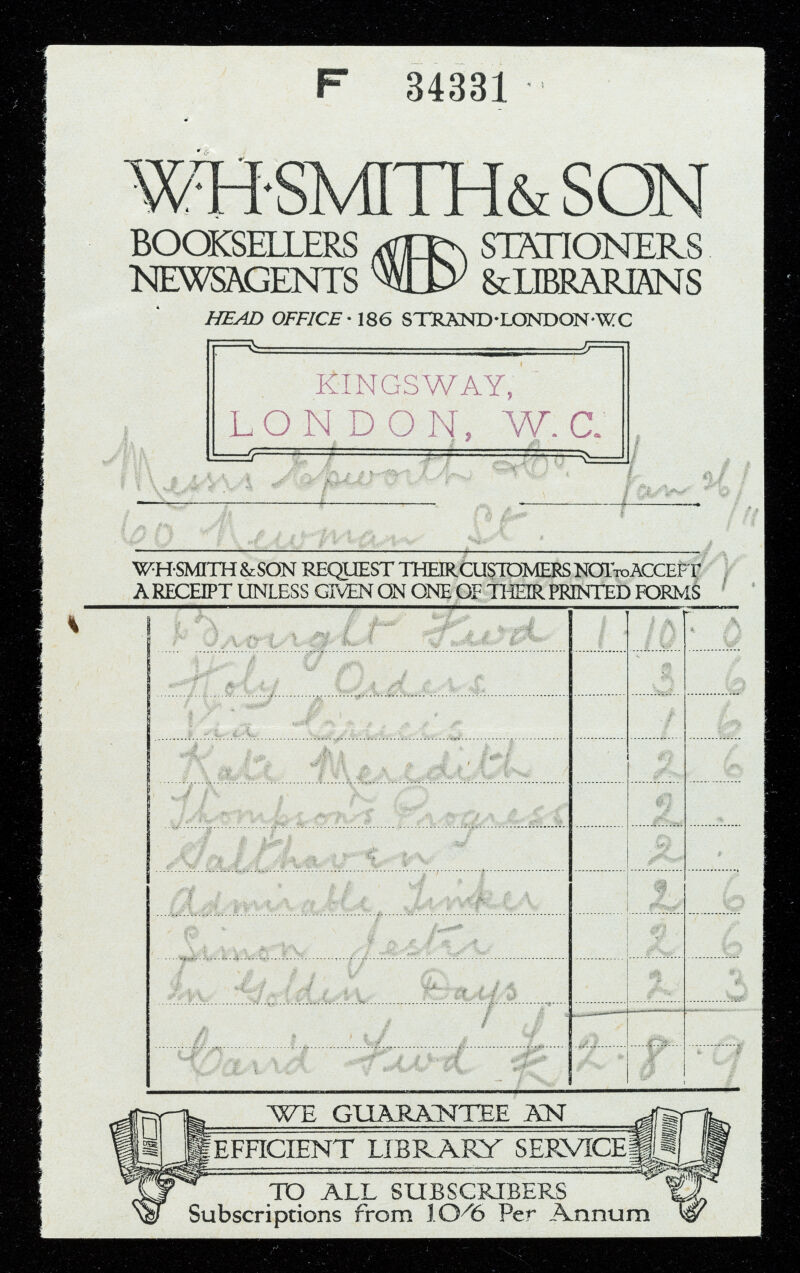 F 34331
W·H·SMITH & SON
BOOKSELLERS WHS STATIONERS
NEWSAGENTS & LIBRARIANS
HEAD OFFICE · 186 STRAND·LONDON·W.C
KINGSWAY,
LONDON, W. C.
Messrs Epworth & Co. Jan 26/11
60 Newman St.
London W.
W·H·SMITH & SON REQUEST THEIR CUSTOMERS NOT TO ACCEPT
A RECEIPT UNLESS GIVEN ON ONE OF THEIR PRINTED FORMS
Brought Fwd 1 · 10 · 0
Holy Orders 3 6
Via Crucis 1 6
Kate Meredith 2 6
Thompson's Progress 2 .
Salthaven 2 .
Admirable Tinker 2 6
Simon Jester 2 6
In Golden Days 2 3
Carr'd Fwd £ 2 · 8 · 9
WE GUARANTEE AN
EFFICIENT LIBRARY SERVICE
TO ALL SUBSCRIBERS
Subscriptions from 10/6 Per Annum